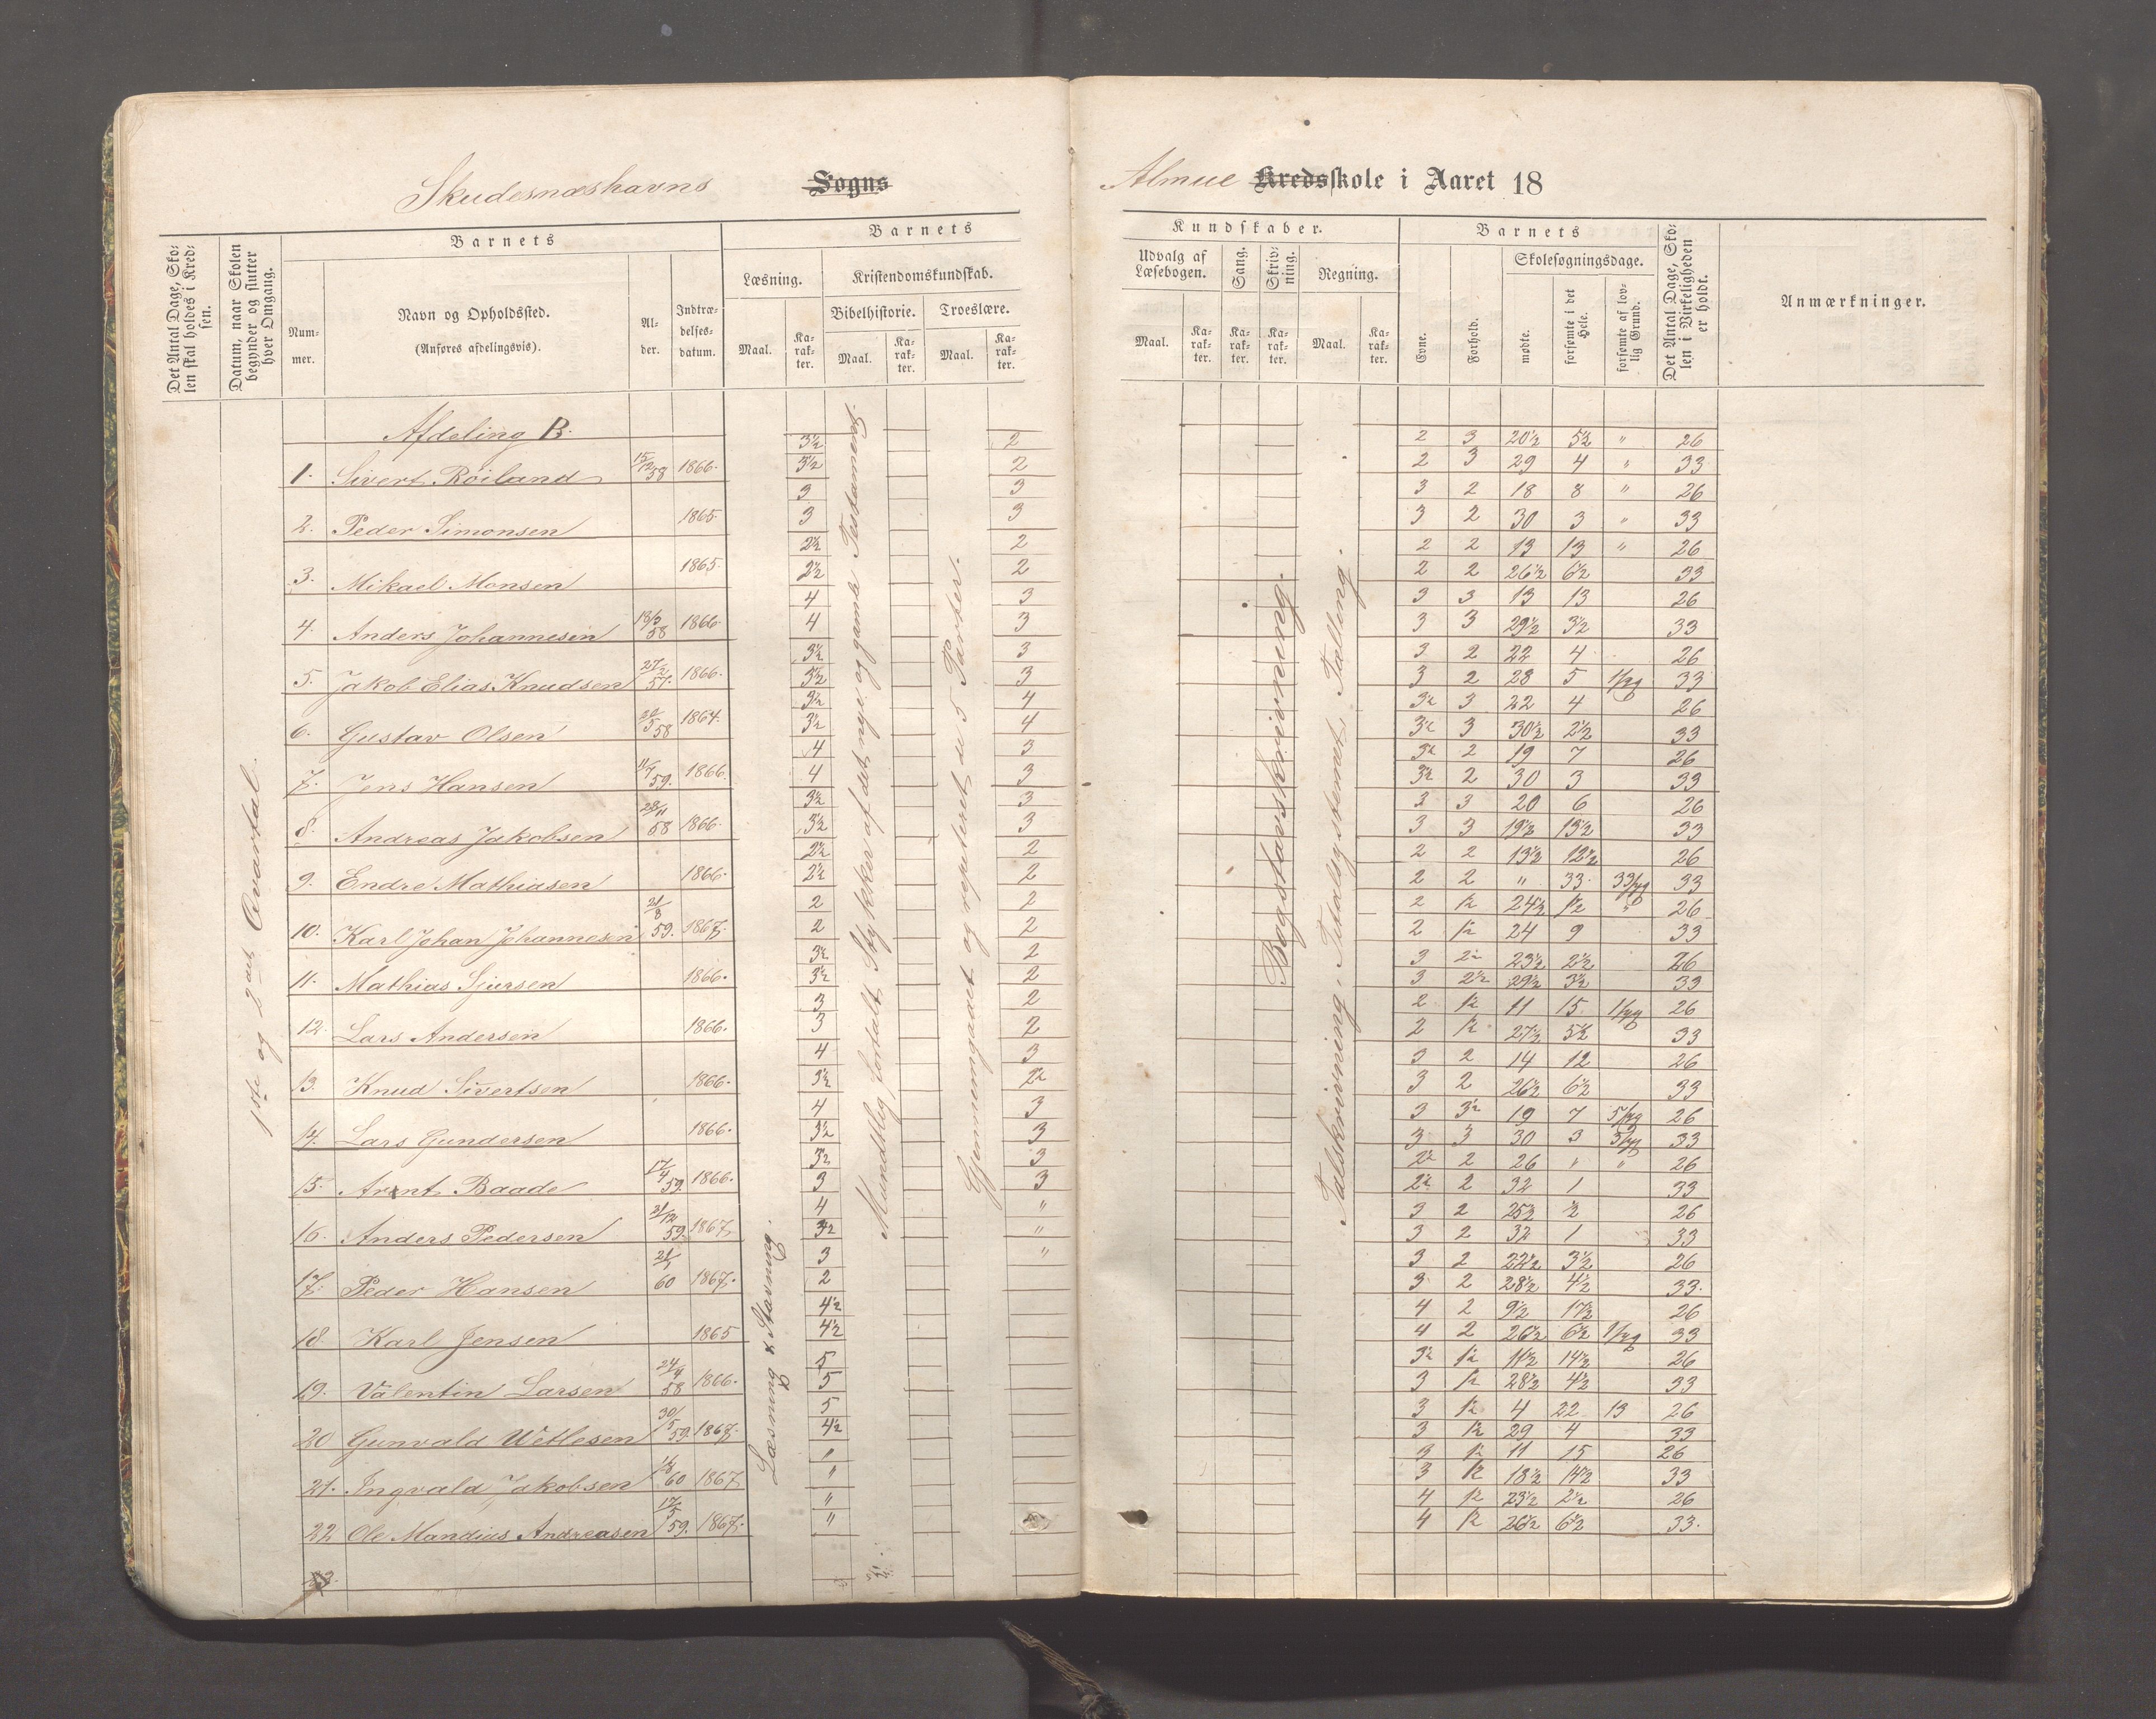 Skudesnæshavns Sogns
Almue Kredsskole i Aaret 18
Det Antal Dage, Skolen skal holdes i Kredsen.
Datum, naar Skolen begynder og slutter hver Omgang.
Barnets
Nummer.
Navn og Opholdssted.
(Anføres afdelingsvis).
Alder.
Indtrædelsesdatum.
Barnets
Læsning.
Maal.
Karakter.
Kristendomskundskab.
Bibelhistorie.
Maal.
Karakter.
Troeslære.
Maal.
Karakter.
Kundskaber.
Udvalg af Læsebogen.
Maal.
Karakter.
Sang.
Karakter.
Skrivning.
Karakter.
Regning.
Maal.
Karakter.
Barnets
Evne.
Forhold.
Skolesøgningsdage.
mødte.
forsømte i det Hele.
forsømte af lovlig Grund.
Det Antal Dage, Skolen i Virkeligheden er holdt.
Anmærkninger.
1ste og 2det Qvartal.
Læsning & Stavning.
Mundtlig fortalt Stykker af det nye og gamle Testament.
Gjennemgaaet og repeteret de 5 Parter.
Bogstavskrivning.
Talskrivning. Titalsystemet. Tælling.
Afdeling B.
1. Sivert Röiland 15/12 58 1866. 3½ 2 2 3 20½ 5½ " 26
3½ 2 2 3 29 4 " 33
2. Peder Simonsen 1865. 3 3 3 2 18 8 " 26
3 3 3 2 30 3 " 33
3. Mikael Monsen 1865. 2½ 2 2 2 13 13 " 26
2½ 2 2 2 26½ 6½ 33
4. Anders Johannesen 58 1866. 4 3 3 3 13 13 26
4 3 3 3 29½ 3½ 33
5. Jakob Elias Knudsen 1866. 3½ 3 3 2 22 4 26
3½ 3 3 2 28 5 33
6. Gustav Olsen 58 1864. 3½ 4 3½ 3 22 4 26
3½ 4 3½ 3 30½ 2½ 33
7. Jens Hansen 59. 1866. 4 3 3½ 2 19 7 26
4 3 3½ 2 30 3 33
8. Andreas Jakobsen 58 1866. 3½ 3 3 3 20 6 26
3½ 3 3 3 19½ 13½ 33
9. Endre Mathiasen 1866. 2½ 2 2 2 13½ 12½ 26
2½ 2 2 2 " 33 33
10. Karl Johan Johannesen 21/8 59. 1867. 2 2 2 1½ 24½ 1½ " 26
2 2 2 1½ 24 9 33
11. Mathias Sjursen 1866. 3½ 2 3 2½ 23½ 2½ 26
3½ 2 3 2½ 29½ 3½ 33
12. Lars Andersen 1866. 3 2 2 1½ 11 15 26
3 2 2 1½ 27½ 5½ 33
13. Knud Sivertsen 1866. 4 3 3 2 14 12 26
3½ 2½ 3 2 26½ 6½ 33
14. Lars Gundersen 1866. 4 3 3 3½ 19 7 26
3½ 3 3 3 30 3 33
15. Arent Baade 17/4 59. 1866. 3½ 3 2½ 2 26 " " 26
3 3 2½ 2 32 1 33
16. Anders Pedersen 21/12 59. 1867. 4 " 3 2 25½ ½ 26
3½ " 3 2 32 1 33
17. Peder Hansen 60 1867. 3 " 3 2 22½ 3½ 26
2 3 2 28½ 4½ 33.
18. Karl Jensen 1865 4½ 4 2 9½ 17½ 26
4½ 4 2 26½ 6½ 33
19. Valentin Larsen 24/4 58 1866. 5 3½ 1½ 11½ 14½ 26
5 3 1½ 28½ 4½ 33
20 Gunvald Wetlesen 30/5 59. 1867. 5 3 1½ 4 22 13 26
4½ 3 1½ 29 4 33
21. Ingvald Jakobsen 60 1867 " 3 1½ 11 15 26
" 3 1½ 18½ 14½ 33
22 Ole Mandius Andreasen 17/5 59. 1867. " 4 1½ 23½ 2½ 26
" 4 1½ 26½ 6½ 33.
23.